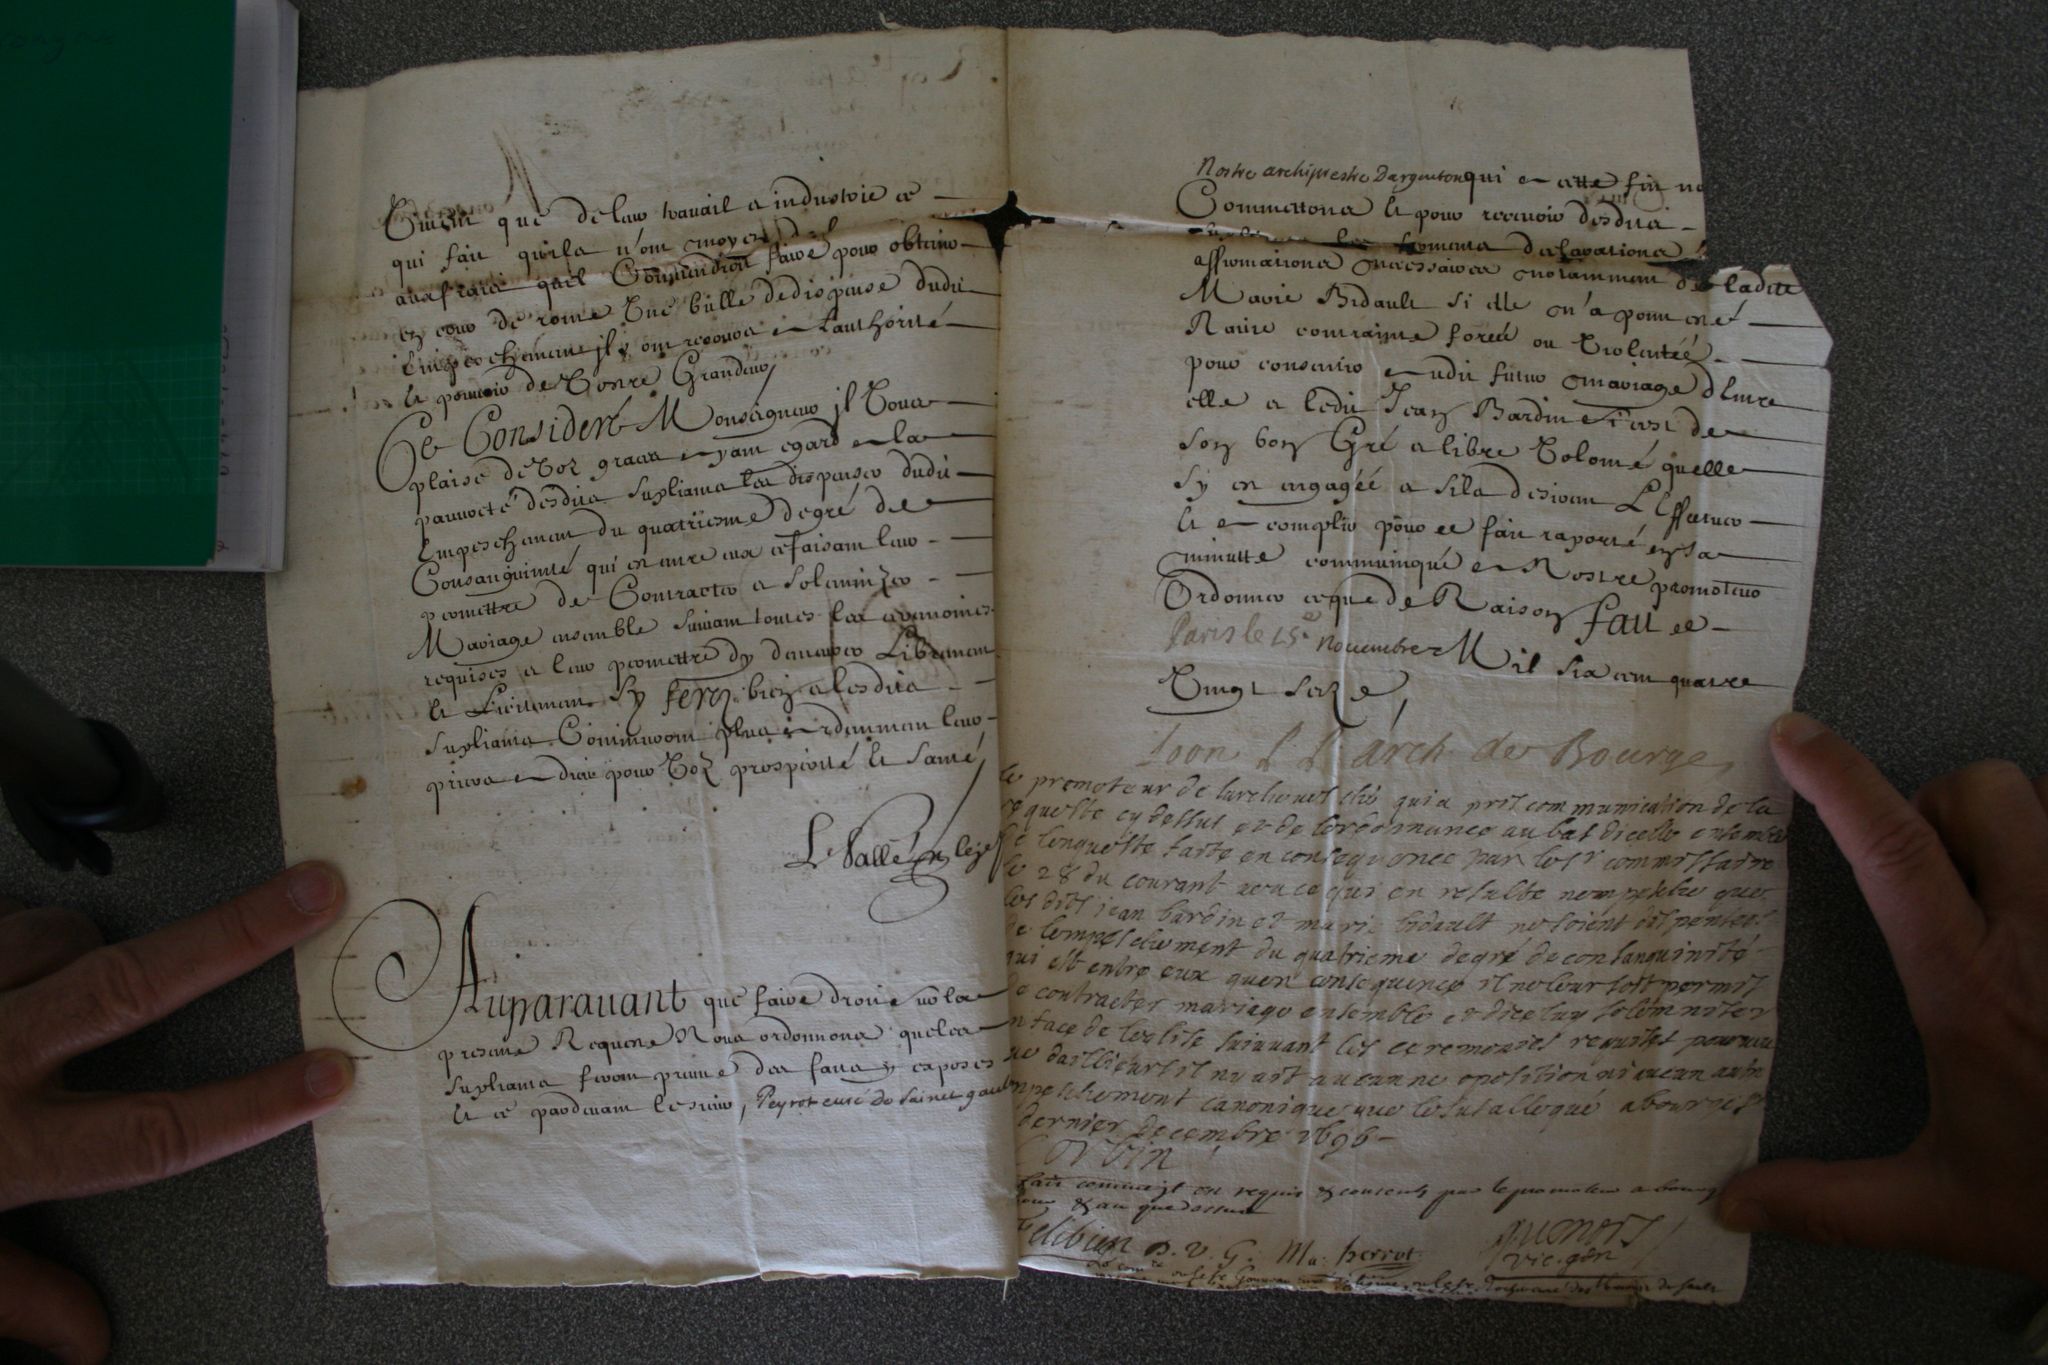 que de leur travail a industrie ce
qui fait quila n'ont moyen
aux fraix quil Conviendroit faire pour obtenir
en cour de rome Une bulle de dispense dudit
Empeschement jl y ont recours a Lauthorité
le pouvoir de Vostre Grandeur
Ce Consideré Monseigneur jl Vous
plaise de Voz graces ayant egard a la
pauvreté desdits supliants les dispenser dudit
Empeschement du quatriesme degré de
Consanguinité qui est entre eux ce faisant leur
permettre de Contracter a solemnizer
Mariage ensemble suivant toutes les ceremonies
requises a leur permettre dy demeurer Librement
le Licitement Sy feréz bien a lesdits
supliants Continueront plus ardamment leurs
prieres a dieu pour Voz prosperité le santé
Auparavant que faire droit sur la
presente Requeste Nous ordonnons que les
supliants feront preuve des faits y exposés
le ce pardevant le sieur, Peyrot curé de Sainct gaultier
Nostre archiprestre Dargenton qui a cette fin nous
Commettons le pour recevoir desdits
serments declarations
affirmations necessaires notamment de ladite
Marie Bidault si elle n'a point esté
Ravie contrainte forcée ou Violentée
pour consentir audit futur mariage d'Entre
elle a ledit Jean Bardin e si c'est de
son bon Gré a libre Volonté quelle
sy est engagée a sila desirent L'Effectuer
le accomplir pour ce fait raporté en sa
minutte communiqué a Nostre promoteur
Ordonner ce que de Raison fait ce
Paris le 15e novembre Mil six cent quatre
Vingt seize,
Leon P P arch de Bourges
le promoteur de larchevesché qui a pris communication de la
requeste cy dessus et de lordonnance au bas dicelle ensemble
de lenqueste faite en consequence par le sr commissaire
le 28 du courant veu ce qui en resulte nempesche que
les dits jean bardin et marie bidault ne soient dispenses
de lempeschement du quatrieme degré de consanguinité
qui est entre eux quen consequence il ne leur soit permis
de contracter mariage ensemble et diceluy solemniser
en face de leglise suivant les ceremonies requises pourveu
que dailleurs il ny ait aucune oposition ni aucun autre
empeschement canonique que le susallegué a bourges
dernier decembre 1696
fait comme jl est requis & consenty par le promoteur a bourges
jour & an que dessus
felibien D. V. G. Ma: perrot
vic. gén